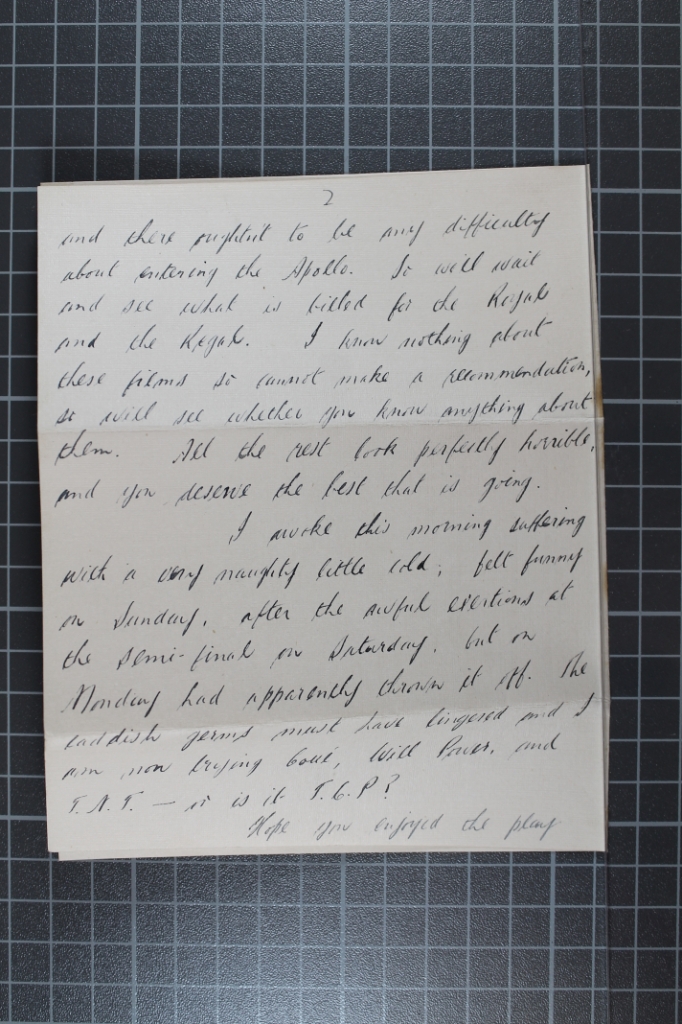 2
and there oughtn't to be any difficulty
about entering the Apollo. So will wait
and see what is billed for the Royal
and the Regal. I know nothing about
these films so cannot make a recommendation,
so will see whether you know anything about
them. All the rest look perfectly horrible,
and you deserve the best that is going.
I awoke this morning suffering
with a very naughty little cold; felt funny
on Sunday, after the awful exertions at
the semi-final on Saturday, but on
Monday had apparently thrown it off. The
caddish germs must have lingered and I
am now trying Coué, Will Power, and
T.N.T. — or is it T.C.P?
Hope you enjoyed the play